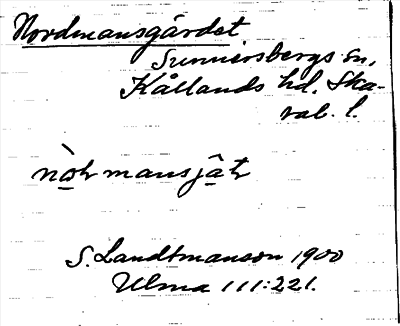 Nordmansgärdet
Sunnersbergs sn,
Kållands hd. Ska-
rab. l.
S. Landtmanson 1900
Ulma 111:221.